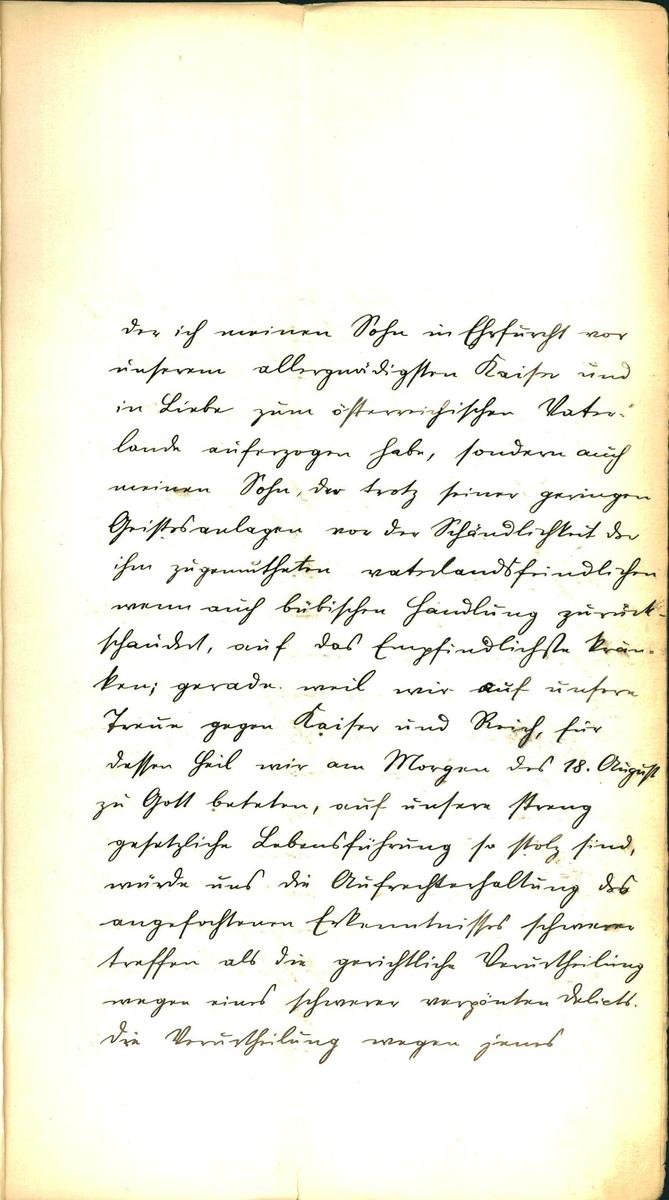 der ich meinen Sohn in Ehrfurcht vor
unserem allergnädigsten Kaiser und
in Liebe zum österreichischen Vater-
lande auferzogen habe, sondern auch
meinen Sohn, der trotz seiner geringen
Geistesanlagen vor der Schändlichkeit der
ihm zugemutheten vaterlandsfeindlichen
wenn auch bübischen Handlung zurück-
schaudert, auf das Empfindlichste krän-
ken; gerade weil wir auf unsere
Treue gegen Kaiser und Reich, für
dessen Heil wir am Morgen des 18. August
zu Gott beteten, auf unsere streng
gesetzliche Lebensführung so stolz sind,
würde uns die Aufrechterhaltung des
angefochtenen Erkenntnisses schwerer
treffen als die gerichtliche Verurtheilung
wegen eines schwerer verpönten Delicts.
Die Verurtheilung wegen jenes